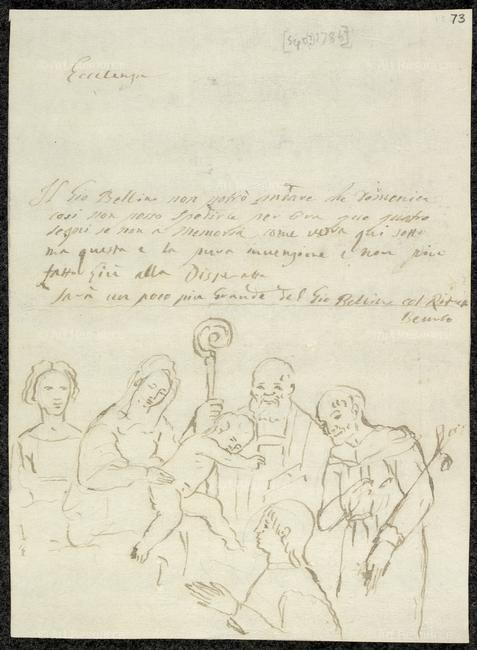 73
Eccelenza
Il Gio Bellino non potrò andare che Domenica
così non posso per Ora
segni se non a Memoria come vedrà qui sotto
ma questa è la pura invenzione e non più
fatta Giù alla Disperata
Sarà un poco più Grande del Gio Bellino col
Bembo